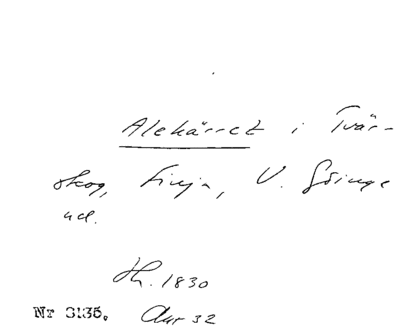 Alekärret i Tvär-
skog, Finja, V. Göinge
hd.
Sk. 1830
Nr 3135. Avr 32